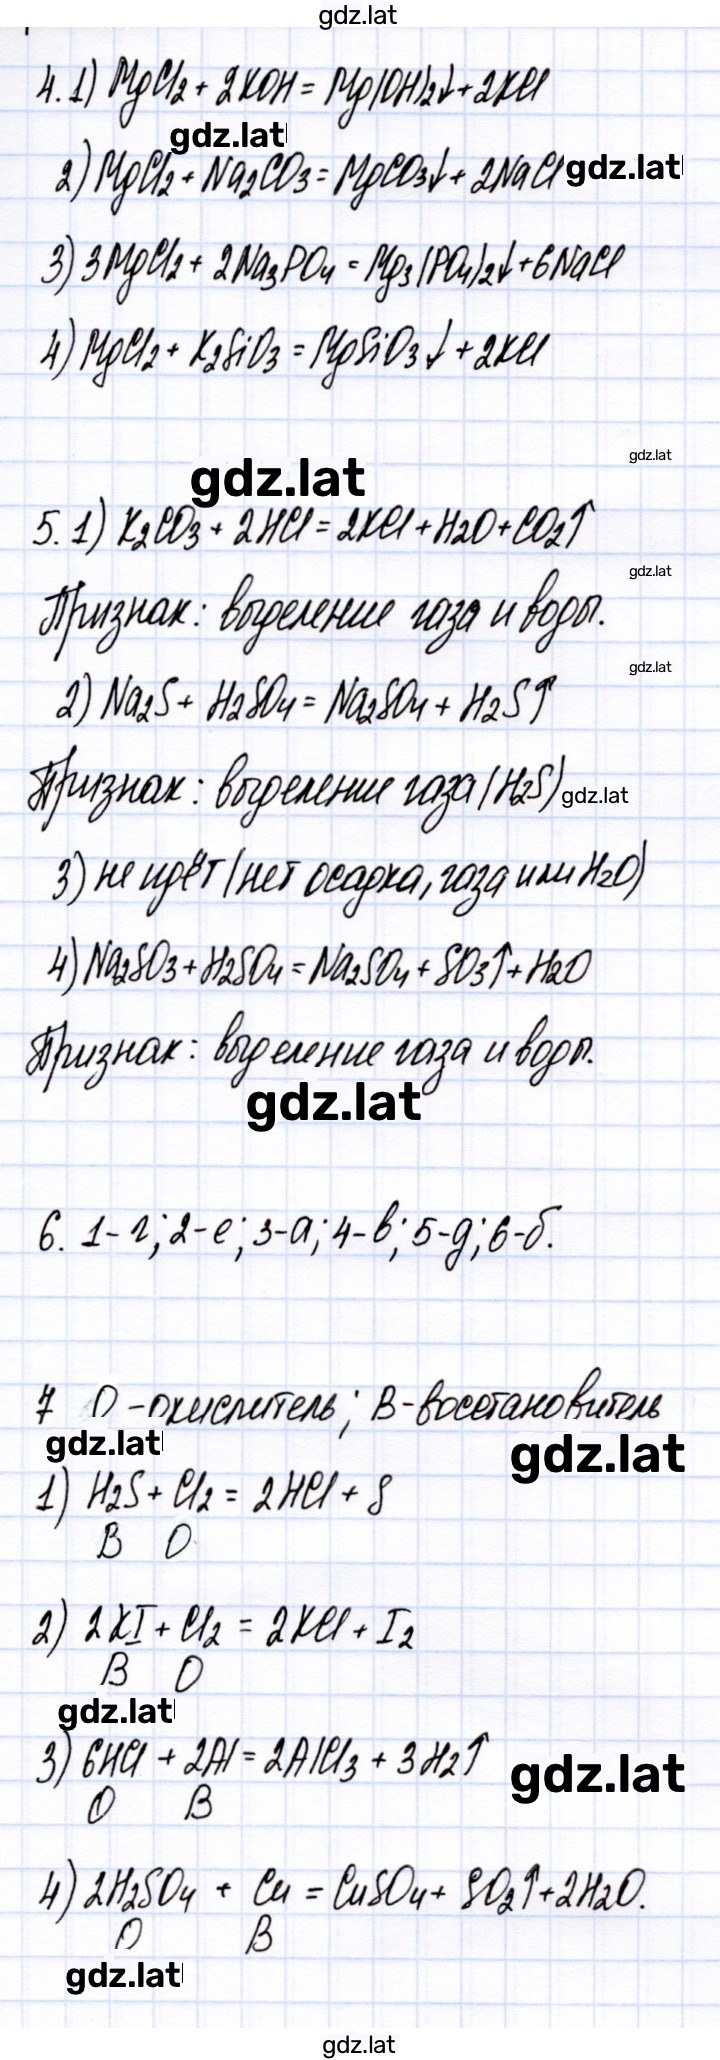 gdz.lat
4. 1) MgCl2 + 2KOH = Mg(OH)2↓ + 2KCl
gdz.lat
2) MgCl2 + Na2CO3 = MgCO3↓ + 2NaCl gdz.lat
3) 3MgCl2 + 2Na3PO4 = Mg3(PO4)2↓ + 6NaCl
4) MgCl2 + K2SiO3 = MgSiO3↓ + 2KCl
gdz.lat
gdz.lat
5. 1) K2CO3 + 2HCl = 2KCl + H2O + CO2↑
gdz.lat
Признак: выделение газа и воды.
gdz.lat
2) Na2S + H2SO4 = Na2SO4 + H2S↑
Признак: выделение газа (H2S) gdz.lat
3) не идёт (нет осадка, газа или H2O)
4) Na2SO3 + H2SO4 = Na2SO4 + SO3↑ + H2O
Признак: выделение газа и воды.
gdz.lat
6. 1-г; 2-е; 3-а; 4-в; 5-д; 6-б.
7 О - окислитель; В - восстановитель
gdz.lat
gdz.lat
1) H2S + Cl2 = 2HCl + S
В О
2) 2KI + Cl2 = 2KCl + I2
В О
gdz.lat
3) 6HCl + 2Al = 2AlCl3 + 3H2↑
gdz.lat
О В
4) 2H2SO4 + Cu = CuSO4 + SO2↑ + 2H2O.
О В
gdz.lat
gdz.lat